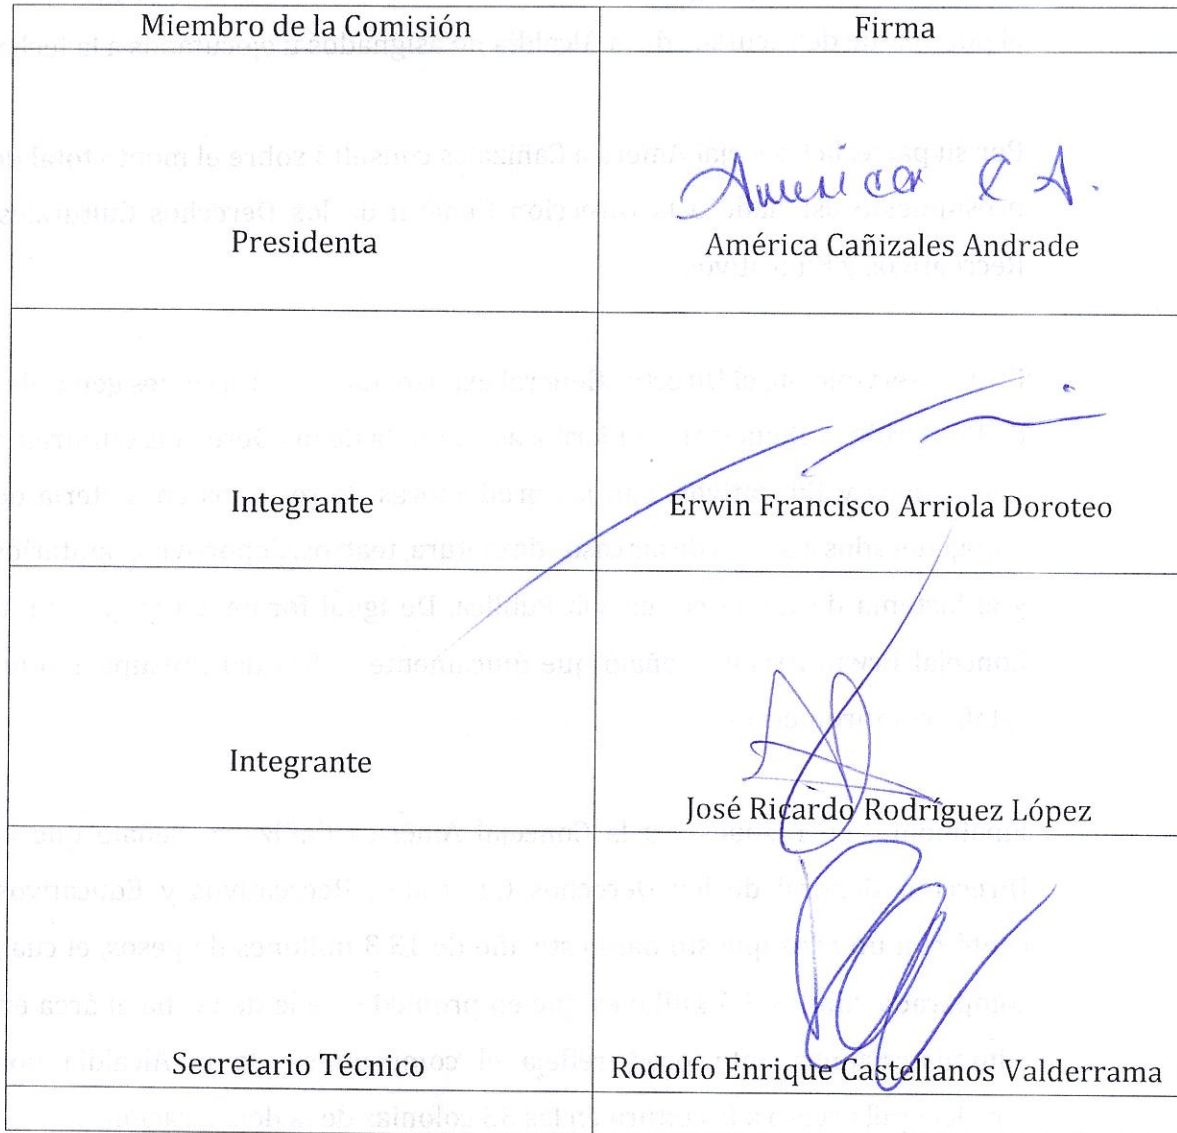 Miembro de la Comisión Firma
América C A.
Presidenta América Cañizales Andrade
Integrante Erwin Francisco Arriola Doroteo
Integrante José Ricardo Rodríguez López
Secretario Técnico Rodolfo Enrique Castellanos Valderrama